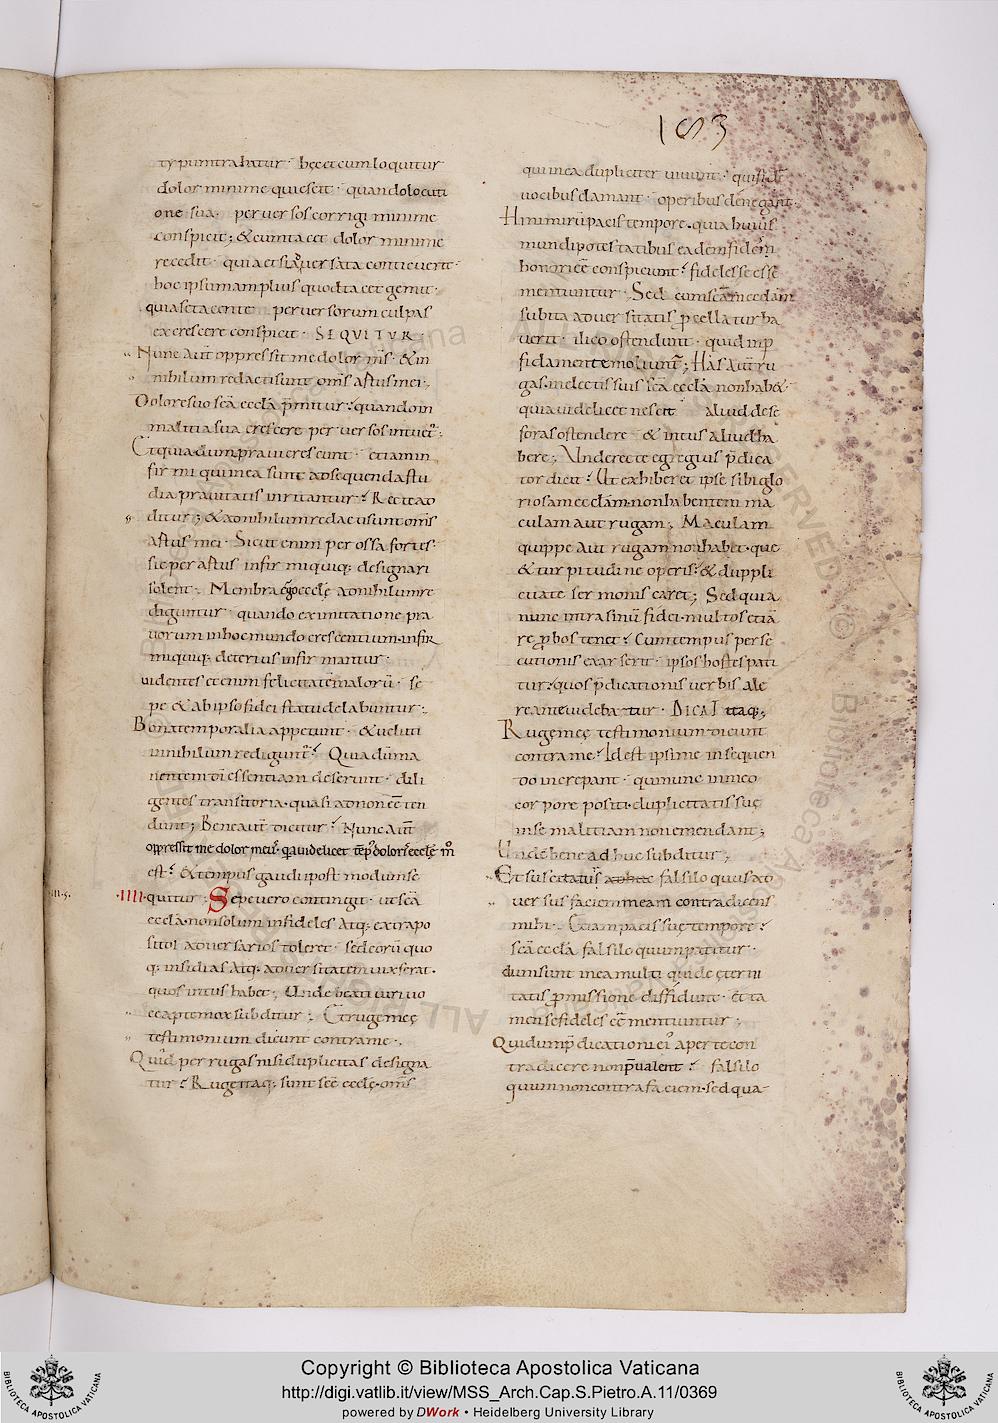 183
dolor minime quiescit · quando locuti
one sua · perversos corrigi minime
conspicit ; & cum tacet dolor minime
hoc ipsum amplius quod tacet gemit ·
quia se tacente perversorum culpas
excrescere conspicit · SEQUITUR ·
Nunc aut̄ oppressit me dolor m̄s · & in
nihilum redacti sunt om̄s artus mei ·
Dolore suo sc̄a eccl̄a p̄mitur · quando in
malitia sua crescere perversos
Et quia dum pravi crescunt · etiam in
firmi qui in ea sunt ad sequenda stu
dia pravitatis inritantur · Recte ad
ditur ; & ad nihilum redacti sunt om̄s
artus mei · Sicut enim per ossa fortes ·
sic per artus infirmi quiq; designari
solent · Membra ecclę ad nihilum re
diguntur · quando ex imitatione pra
vorum in hoc mundo crescentium · infir
mi quiq; deterius infirmantur ·
videntes etenim felicitatē malorū · se
pe & ab ipso fidei statu delabuntur ·
Bona temporalia appetunt · & veluti
in nihilum · Quia dū ma
nentem d̄i essentiam deserunt · dili
gentes transitoria · quasi ad non eē ten
dunt ; Bene aut̄ dicitur · Nunc aut̄
oppressit me dolor meus · 
est · & tempus gaudii post modum se
·IIII· quitur · Sepe vero contingit · ut sc̄a
eccl̄a · non solum infideles atq; extra po
sitos adversarios toleret · sed eorū quo
q; insidias atq; adversitatem vix ferat ·
quos intus habet ; Unde beati viri vo
ce apte mox subditur ; Et rugę meę
testimonium dicunt contra me ·
Quid per rugas nisi duplicitas designa
tur · Rugę itaq; sunt sc̄e ecclę · om̄s
qui in ea dupliciter vivunt ·
vocibus clamant · operibus denegant ·
Hi nimirū pacis tempore · quia huius
mundi potestatibus eadem fidem
honori eē conspiciunt · fideles se esse
mentiuntur · Sed cum sc̄am eccl̄am
subita adversitatis p̄cella turba
verit · ilico ostendunt · quid
fida mente moliunt̄ ; Has aut̄ ru
gas in electis suis sc̄a eccl̄a non hab& ·
quia videlicet nescit aliud de se
foras ostendere & intus aliud ha
bere ; Unde recte egregius p̄dica
tor dicit · Ut exhiberet ipse sibi glo
riosam eccl̄am · non habentem ma
culam aut rugam ; Maculam
quippe aut rugam non habet · que
& turpitudine operis · & dupli
citate sermonis caret ; Sed quia
nunc intra sinū fidei · multos etiā
rep̄bos tenet · Cum tempus perse
cutionis exarserit · ipsos hostes pati
tur · quos p̄dicationis verbis ale
re ante videbatur · DICAT itaq;
Rugę meę testimonium dicunt
contra me · Id est ipsi me insequen
do increpant · qui nunc in meo
corpore positi · duplicitatis suę
in se malitiam non emendant ;
Unde bene adhuc subditur ;
Et suscitatus adversus faciem meam contradicens
mihi · Etiam pacis suę tempore ·
sc̄a eccl̄a falsiloquum patitur ·
dum sunt in ea multi qui de ęterni
tatis p̄missione diffidunt · & ta
men se fideles eē mentiuntur ;
Qui dum p̄dicationi ei᾽ aperte con
tradicere non p̄valent · falsilo
quum non contra faciem · sed qua
Copyright © Biblioteca Apostolica Vaticana
http://digi.vatlib.it/view/MSS_Arch.Cap.S.Pietro.A.11/0369
powered by DWork • Heidelberg University Library
BIBLIOTECA APOSTOLICA VATICANA
BIBLIOTECA APOSTOLICA VATICANA